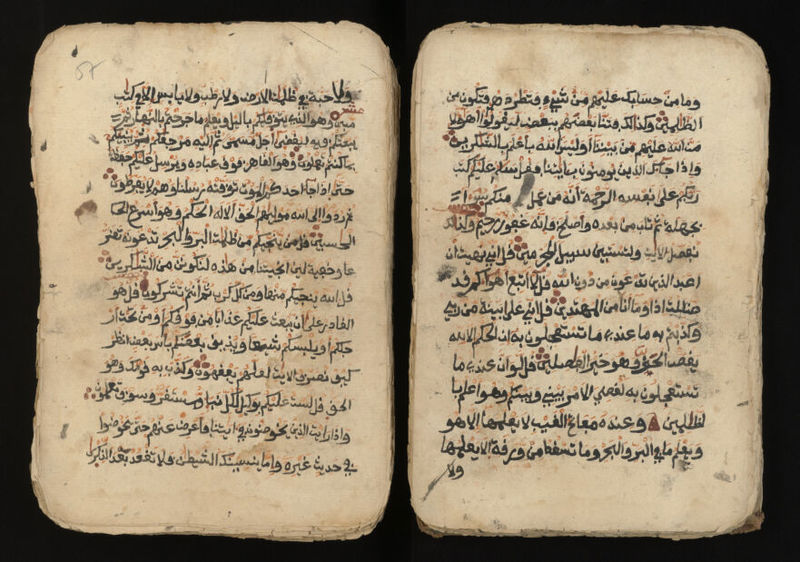 وما من حسابك عليهم من شيء فتطردهم فتكون من
الظلمين وكذلك فتنا بعضهم ببعض ليقولوا اهولا
من الله عليهم من بيننا اليس الله باعلم بالشكرين
وإذا جاك الذين يومنون بايتنا فقل سلم عليكم كتب
ربكم على نفسه الرحمة انه من عمل منكم سوا
بجهلة ثم تاب من بعده واصلح فانه غفور رحيم وكذلك
نفصل الايت ولتستبين سبيل المجرمين قل اني نهيت ان
اعبد الذين تدعون من دون الله قل لا اتبع اهواكم قد
ضللت اذا وما انا من المهتدين قل اني على بينة من ربي
وكذبتم به ما عندي ما تستعجلون به ان الحكم الا لله
يقص الحق وهو خير الفصلين قل لو ان عندي ما
تستعجلون به لقضي الامر بيني وبينكم وهو اعلم با
لظلمين وعنده مفاتح الغيب لا يعلمها الا هو
ويعلم ما في البر والبحر وما تسقط من ورقة الا يعلمها
ولا
ولا حبة في ظلمت الارض ولا رطب ولا يابس الا في كتب
مبين وهو الذي يتوفكم باليل ويعلم ما جرحتم بالنهار ثم
يبعثكم فيه ليقضى اجل مسمى ثم اليه مرجعكم ثم ينبئكم
بما كنتم تعملون وهو القاهر فوق عباده ويرسل عليكم حفظة
حتى اذا جا احدكم الموت توفته رسلنا وهم لا يفرطون
ثم ردوا الى الله موليهم الحق الا له الحكم وهو اسرع الحا
الحسبين قل من ينجيكم من ظلمت البر والبحر تدعونه تضر
عا وخفية لين انجيتنا من هذه لنكونن من الشكرين
قل الله ينجيكم منها ومن كل كرب ثم انتم تشركون قل هو
القادر على ان يبعث عليكم عذابا من فوقكم او من تحت ار
جلكم او يلبسكم شيعا ويذيق بعضكم باس بعض انظر
كيف نصرف الايت لعلهم يفقهون وكذب به قومك وهو
الحق قل لست عليكم بوكيل لكل نبا مستقر وسوف تعلمون
واذا رايت الذين يخوضون في ايتنا فاعرض عنهم حتى يخوضوا
في حديث غيره واما ينسينك الشيطن فلا تقعد بعد الذكرى